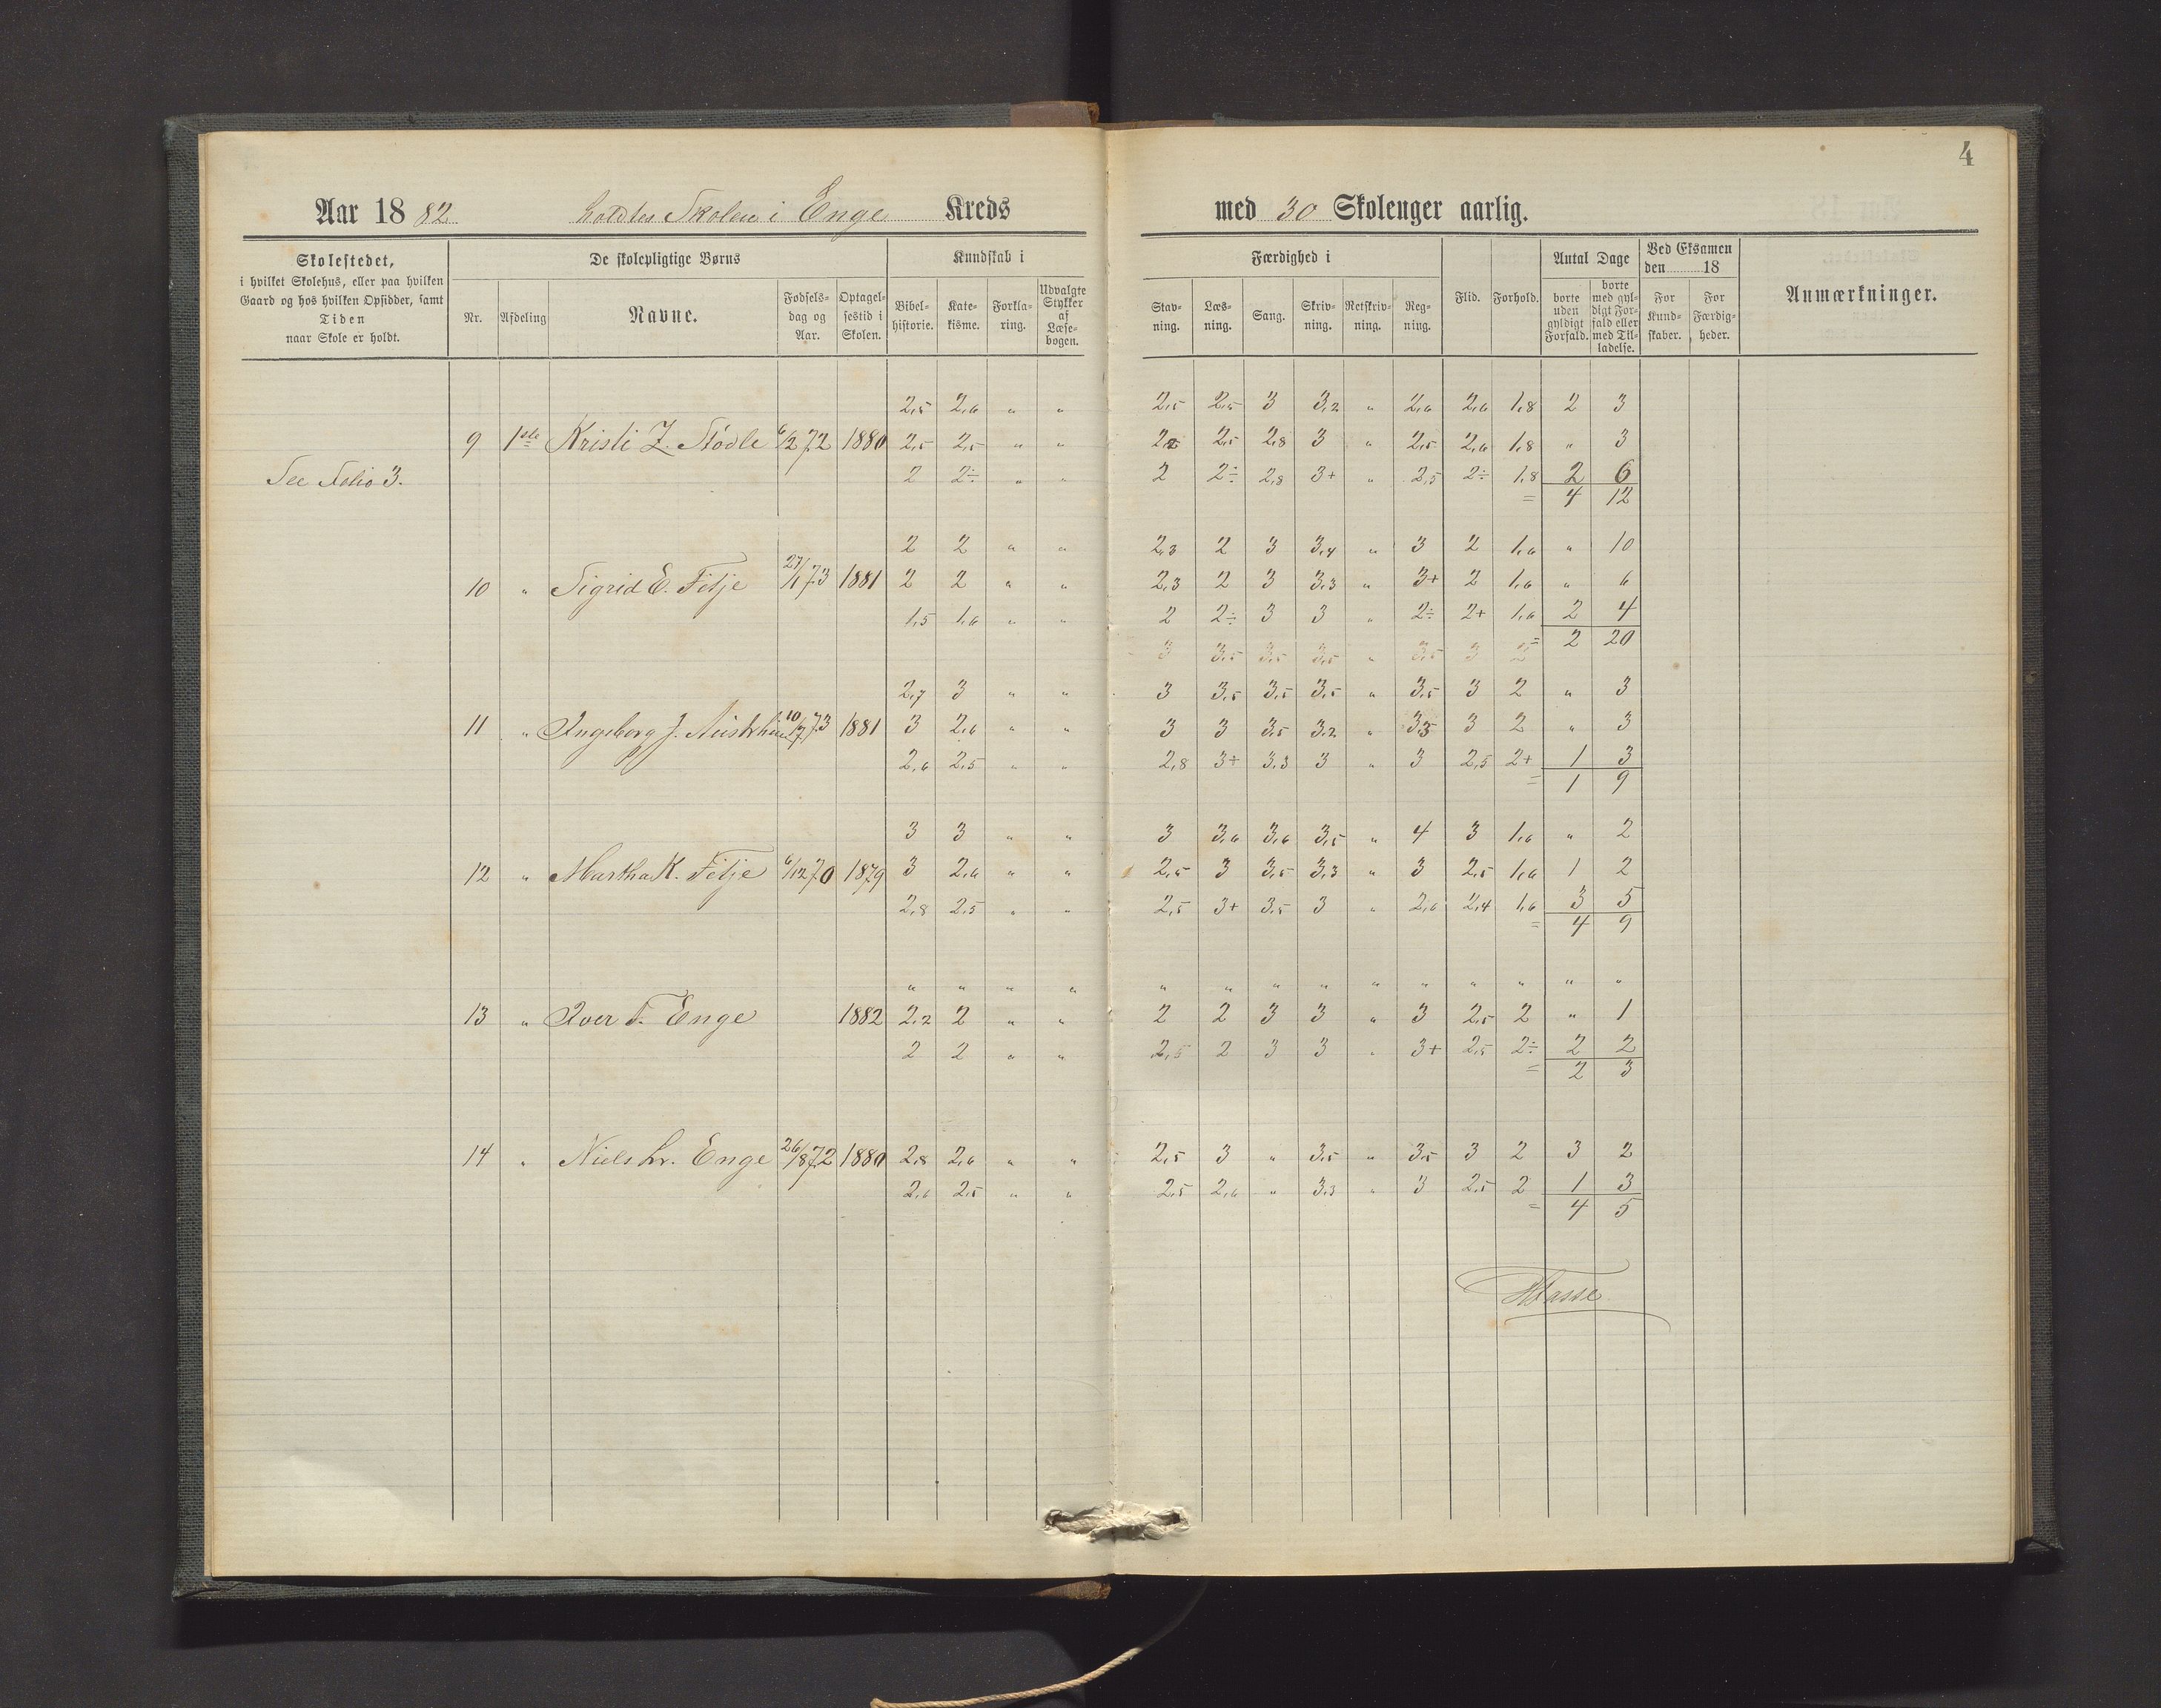 4
Aar 1882 holdtes Skolen i Enge Kreds med 30 Skolenger aarlig.
Skolestedet, i hvilket Skolehus, eller paa hvilken Gaard og hos hvilken Opsidder, samt Tiden naar Skole er holdt.
De skolepligtige Børns
Kundskab i
Færdighed i
Antal Dage
Ved Eksamen den 18
Nr. Afdeling Navne. Fødsels-dag og Aar. Optagel-sestid i Skolen. Bibel-historie. Kate-kisme. Forkla-ring. Udvalgte Stykker af Læse-bogen. Stav-ning. Læs-ning. Sang. Skriv-ning. Retskriv-ning. Reg-ning. Flid. Forhold. borte uden gyldigt Forfald. borte med gyl-digt For-fald eller med Til-ladelse. For Kund-skaber. For Færdig-heder. Anmærkninger.
2,5 2,6 " " 2,5 2,5 3 3,2 " 2,6 2,6 1,8 2 3
9 1ste Kristi Z. Stödle 6/2 72 1880 2,5 2,5 " " 2,5 2,8 3 " 2,5 2,6 1,8 " 3
See Folio 3. 2 2÷ " " 2 2÷ 2,8 3+ " 2,5 2÷ 1,8 2 6
= 4 12
2 2 " " 2,3 2 3 3,4 " 3 2 1,6 " 10
10 " Sigrid E. Fitje 27/1 73 1881 2 2 " " 2,3 2 3 3,3 " 3+ 2 1,6 " 6
1,5 1,6 " " 2 2÷ 3 3 " 2÷ 2+ 1,6 2 4
= 2 20
3 3,5 3,5 3,5 " 3,5 3 2
2,7 3 " " 3 3,5 3,5 3,5 " 3,5 3 2 " 3
11 " Ingeborg J. 10/7 73 1881 3 2,6 " " 3 3 3,5 3,2 " 3,3 3 2 " 3
2,6 2,5 " " 2,8 3+ 3,3 3 " 3 2,5 2+ 1 3
= 1 9
3 3 " " 3 3,6 3,6 3,5 " 4 3 1,6 " 2
12 " Martha K. Fitje 6/12 70 1879 3 2,6 " " 2,5 3 3,5 3,3 " 3 2,5 1,6 1 2
2,8 2,5 " " 2,5 3+ 3,5 3 " 2,6 2,4 1,6 3 5
= 4 9
" " " " " " " " " " " " " "
13 " Iver T. Enge 1882 2,2 2 " " 2 2 3 3 " 3 2,5 2 " 1
2 2 " " 2,5 2 3 3 " 3+ 2,5 2÷ 2 2
= 2 3
14 " Niels Enge 26/8 72 1880 2,8 2,6 " " 2,5 3 " 3,5 " 3,5 3 2 3 2
2,6 2,5 " " 2,5 2,6 " 3,3 " 3 2,5 2 1 3
= 4 5